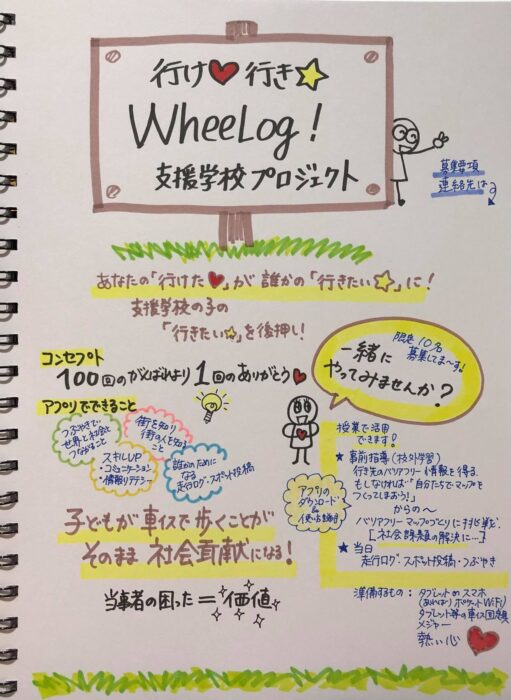 行け♥行き☆
WheeLog！
支援学校プロジェクト
募集要項
連絡先は
あなたの「行けた♥」が誰かの「行きたい☆」に！
支援学校の子の
「行きたい☆」を後押し！
コンセプト
100回のがんばれより1回のありがとう♥
アプリでできること
つぶやきで
世界と社会と
つながること
街を知り
街の人を知る
こと
スキルUP
・コミュニケーション
・情報リテラシー
誰かのために
なる
走行ログ・スポット投稿
子どもが車イスで歩くことが
そのまま社会貢献になる！
当事者の困った＝価値
限定10名
募集してま〜す！
一緒に
やってみませんか？
授業で活用
できます！
★事前指導（校外学習）
行き先のバリアフリー情報を得る
もしなければ…「自分たちでマップを
つくってしまおう！」
からの〜
バリアフリーマップづくりに挑戦。
[社会課題の解決に…]
★当日
走行ログ・スポット投稿・つぶやき
アプリの
ダウンロード
&
準備するもの：タブレットorスマホ
（あればポケットWiFi）
タブレット等の車イス固定具
メジャー
熱い心